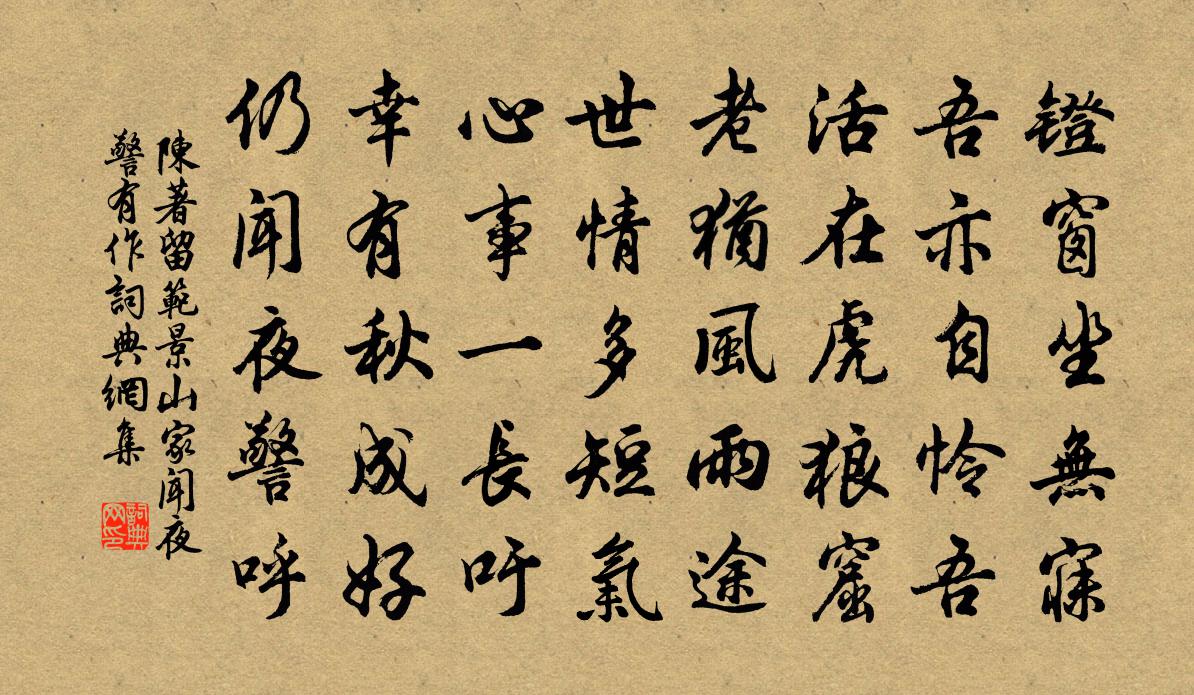 镫窗坐無寐
吾亦自怜吾
活在虎狼窟
老猶風雨途
世情多短氣
心事一長吁
幸有秋成好
仍聞夜警呼
陳著留範景山家聞夜
警有作詞典網集
詞典网印